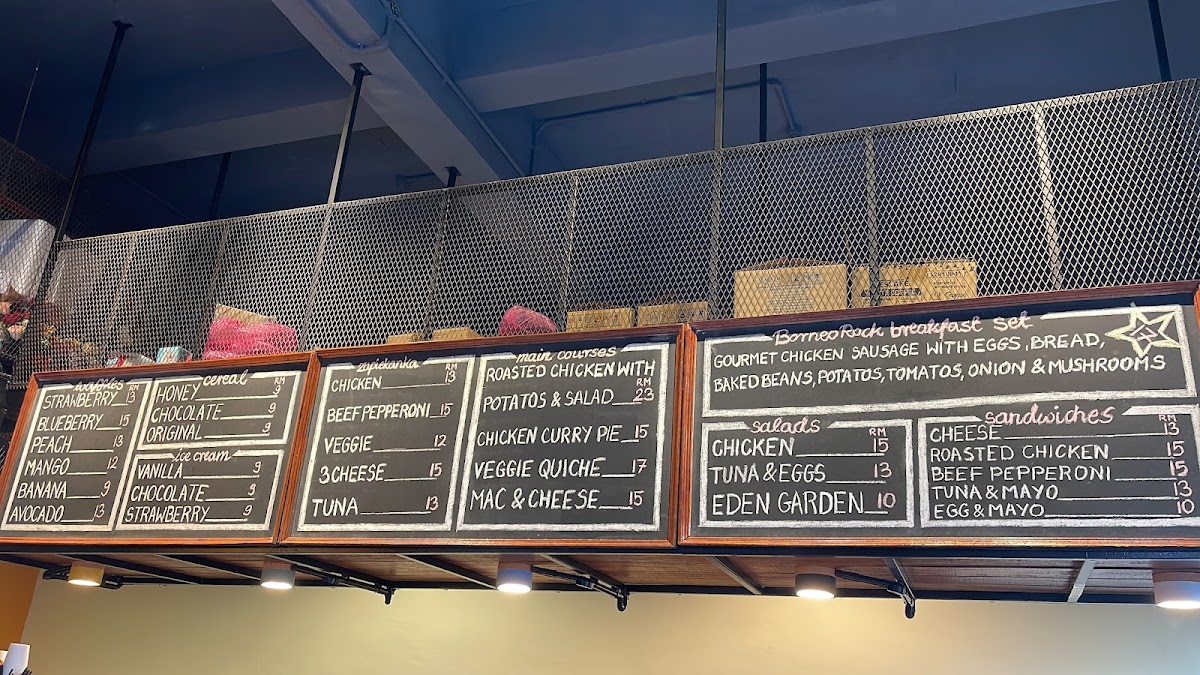 waffles
RM
STRAWBERRY 13
BLUEBERRY 15
PEACH 13
MANGO 12
BANANA 9
AVOCADO 13
cereal
RM
HONEY 9
CHOCOLATE 9
ORIGINAL 9
ice cream
VANILLA 9
CHOCOLATE 9
STRAWBERRY 9
zapiekanka
RM
CHICKEN 13
BEEF PEPPERONI 15
VEGGIE 12
3 CHEESE 15
TUNA 13
main courses
ROASTED CHICKEN WITH
RM
POTATOS & SALAD 23
CHICKEN CURRY PIE 15
VEGGIE QUICHE 17
MAC & CHEESE 15
Borneo Rock breakfast set
GOURMET CHICKEN SAUSAGE WITH EGGS, BREAD,
BAKED BEANS, POTATOS, TOMATOS, ONION & MUSHROOMS
salads
RM
CHICKEN 15
TUNA & EGGS 13
EDEN GARDEN 10
sandwiches
RM
CHEESE 13
ROASTED CHICKEN 15
BEEF PEPPERONI 15
TUNA & MAYO 13
EGG & MAYO 10